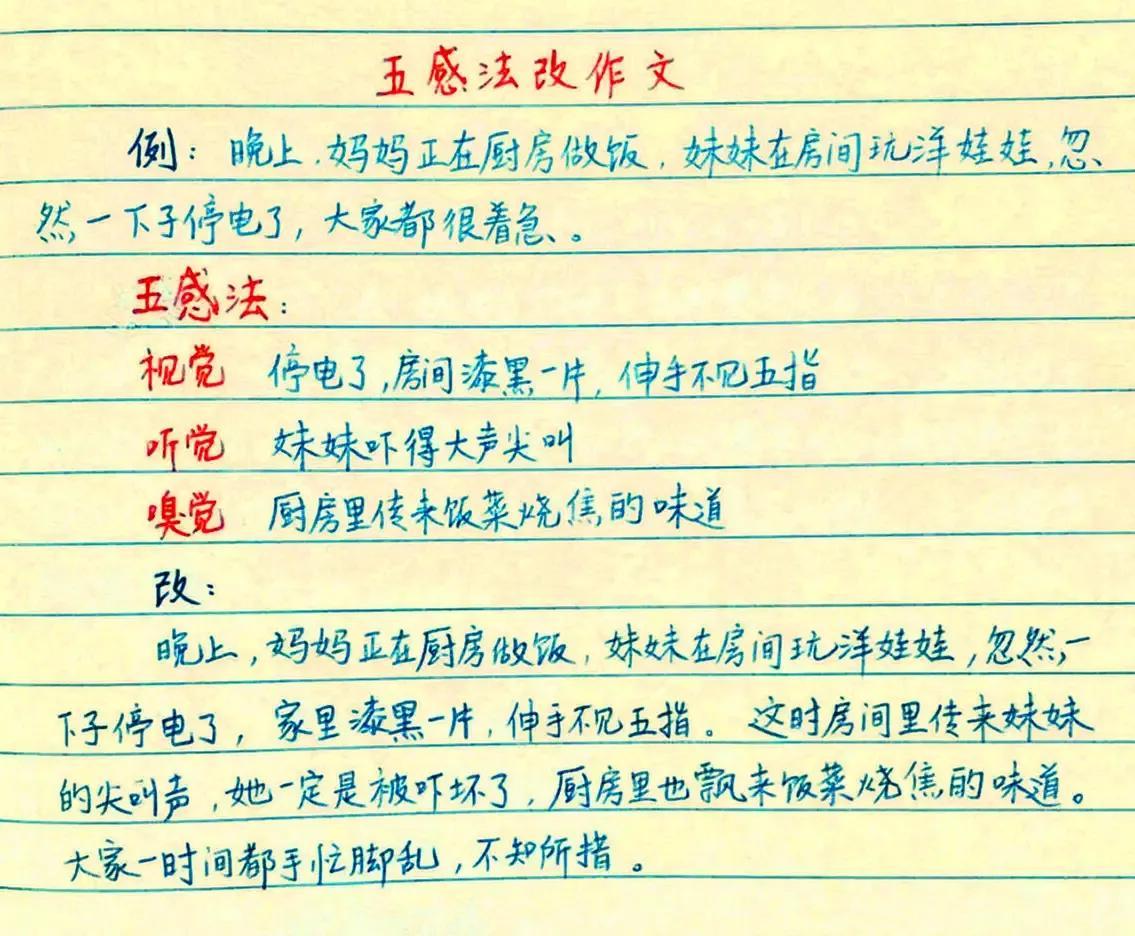 五感法改作文
例：晚上，妈妈正在厨房做饭，妹妹在房间玩洋娃娃，忽
然一下子停电了，大家都很着急。
五感法：
视觉 停电了，房间漆黑一片，伸手不见五指
听觉 妹妹吓得大声尖叫
嗅觉 厨房里传来饭菜烧焦的味道
改：
晚上，妈妈正在厨房做饭，妹妹在房间玩洋娃娃，忽然一
下子停电了，家里漆黑一片，伸手不见五指。这时房间里传来妹妹
的尖叫声，她一定是被吓坏了，厨房里也飘来饭菜烧焦的味道。
大家一时间都手忙脚乱，不知所措。